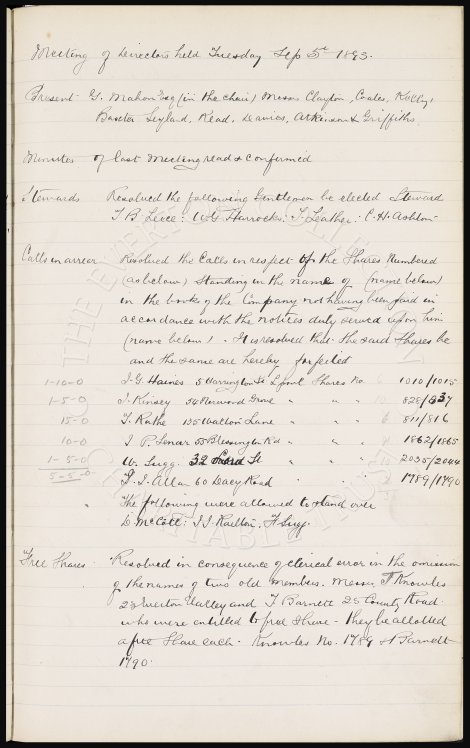 Meeting of Directors held Tuesday Sep 5th 1893.
Present G. Mahon Esq (in the chair) Messrs Clayton, Coates, Kelly,
Baxter Leyland, Read, Davies, Atkinson & Griffiths
Minutes of last Meeting read & confirmed
Stewards Resolved the following Gentlemen be elected Steward
T B Leice: W G Harrocks: J Leather: C. H. Ashton
Calls in arrear Resolved the Calls in respect of the Shares Numbered
(as below) Standing in the name of (name below)
in the books of the Company not having been paid in
accordance with the notices duly served upon him
(name below). It is resolved that the said Shares be
and the same are hereby forfeited
1-10-0 J. G. Haines 5 Harrington St L'pool Shares No 6 1010/1015
1-5-0 J. Kinsey 54 Norwood Grove " " " 10 828/837
15-0 T. Rathe 135 Walton Lane " " " 6 811/816
10-0 J P. 55 Blessington Rd " " " 4 1862/1865
1-5-0 W. Sugg 32 St " " " 10 2035/2044
5-5-0 J. Allan 60 Dacy Road " " " 1789/1790
The following were allowed to stand over
D. McCall: J. J. Railton, F Sugg.
Free Shares Resolved in consequence of clerical error in the omission
of the names of two old members. Messrs T Knowles
23 Everton Valley and T Barnett 25 County Road
who were entitled to free Share - they be allotted
a free Share each. Knowles No. 1789 & Barnett
1790.